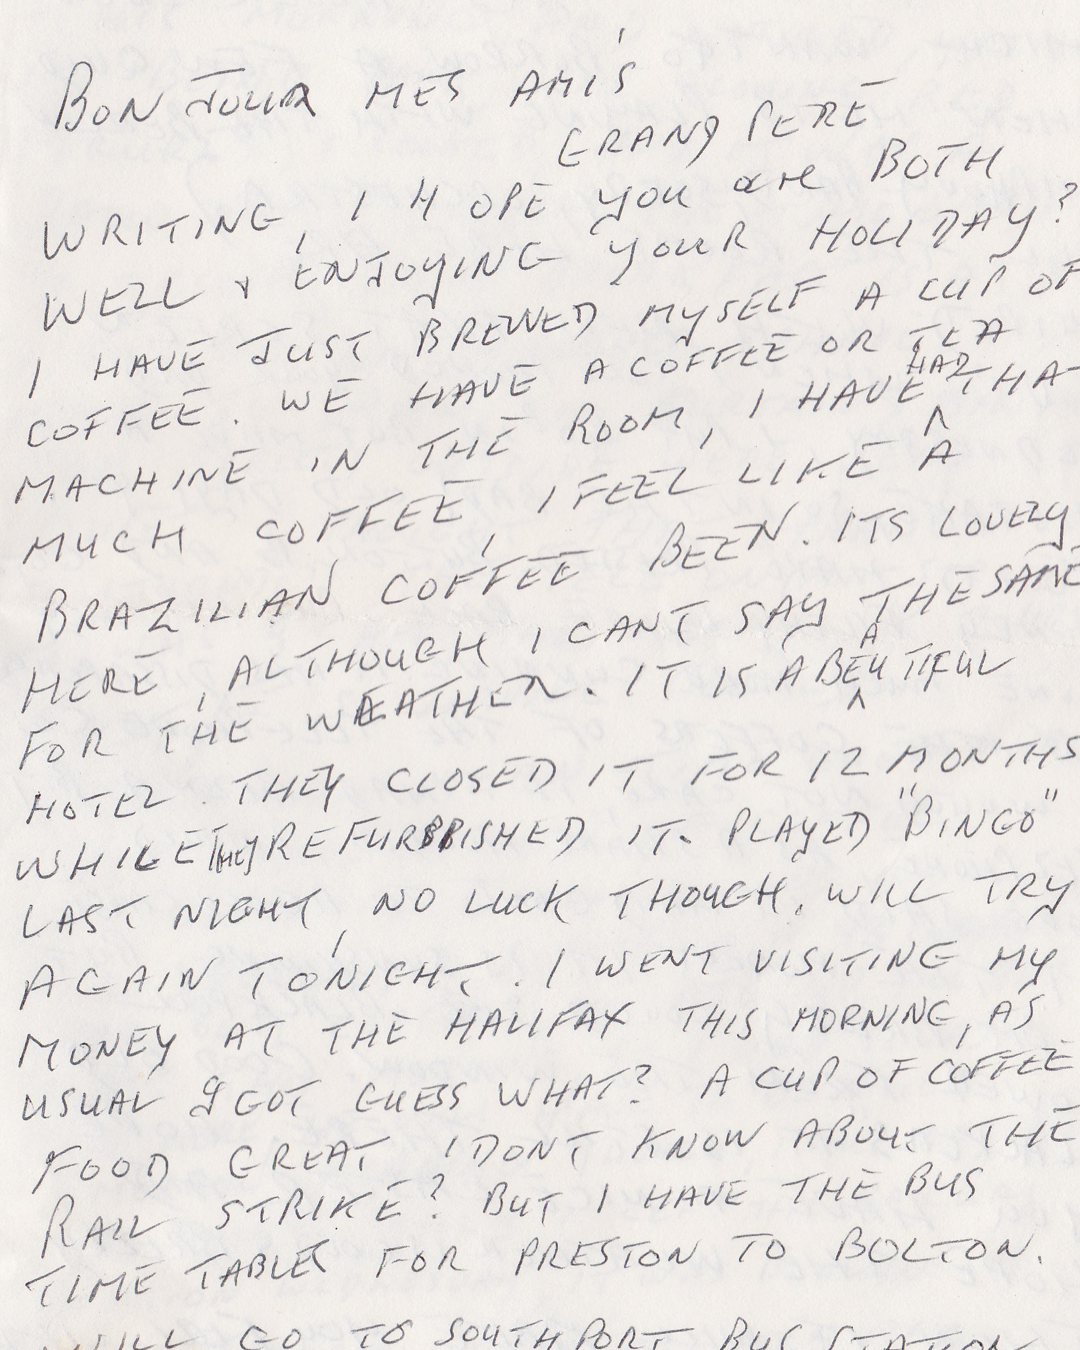 BON JOUR MES AMIS
GRAND PERE
WRITING, I HOPE YOU are BOTH
WELL & ENJOYING YOUR HOLIDAY?
I HAVE JUST BREWED MYSELF A CUP OF
COFFEE. WE HAVE A COFFEE OR TEA
MACHINE IN THE ROOM, I HAVE HAD THAT
MUCH COFFEE, I FEEL LIKE A
BRAZILIAN COFFEE BEEN. ITS LOVELY
HERE, ALTHOUGH I CANT SAY THE SAME
FOR THE WEATHER. IT IS A BEAUTIFUL
HOTEL. THEY CLOSED IT FOR 12 MONTHS
WHILE THEY REFURBISHED IT. PLAYED "BINGO"
LAST NIGHT, NO LUCK THOUGH, WILL TRY
AGAIN TONIGHT. I WENT VISITING MY
MONEY AT THE HALIFAX THIS MORNING, AS
USUAL I GOT GUESS WHAT? A CUP OF COFFEE
FOOD GREAT I DONT KNOW ABOUT THE
RAIL STRIKE? BUT I HAVE THE BUS
TIME TABLE FOR PRESTON TO BOLTON.
WILL GO TO SOUTHPORT BUS STATION